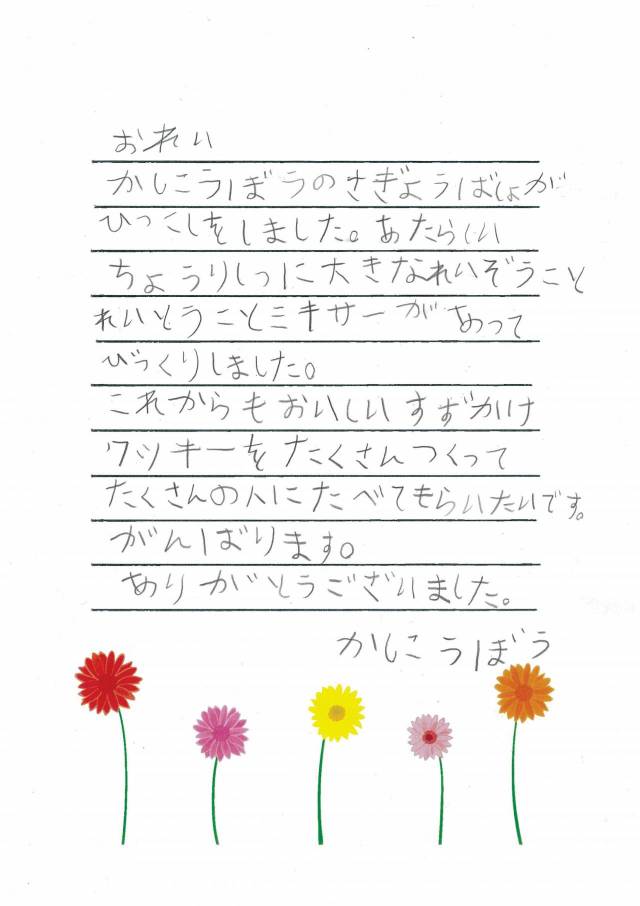 おれい
かしこうぼうのさぎょうばしょが
ひっこしをしました。あたらしい
ちょうりしつに大きなれいぞうこと
れいとうことミキサーがあって
びっくりしました。
これからもおいしいすずかけ
クッキーをたくさんつくって
たくさんの人にたべてもらいたいです。
がんばります。
ありがとうございました。
かしこうぼう